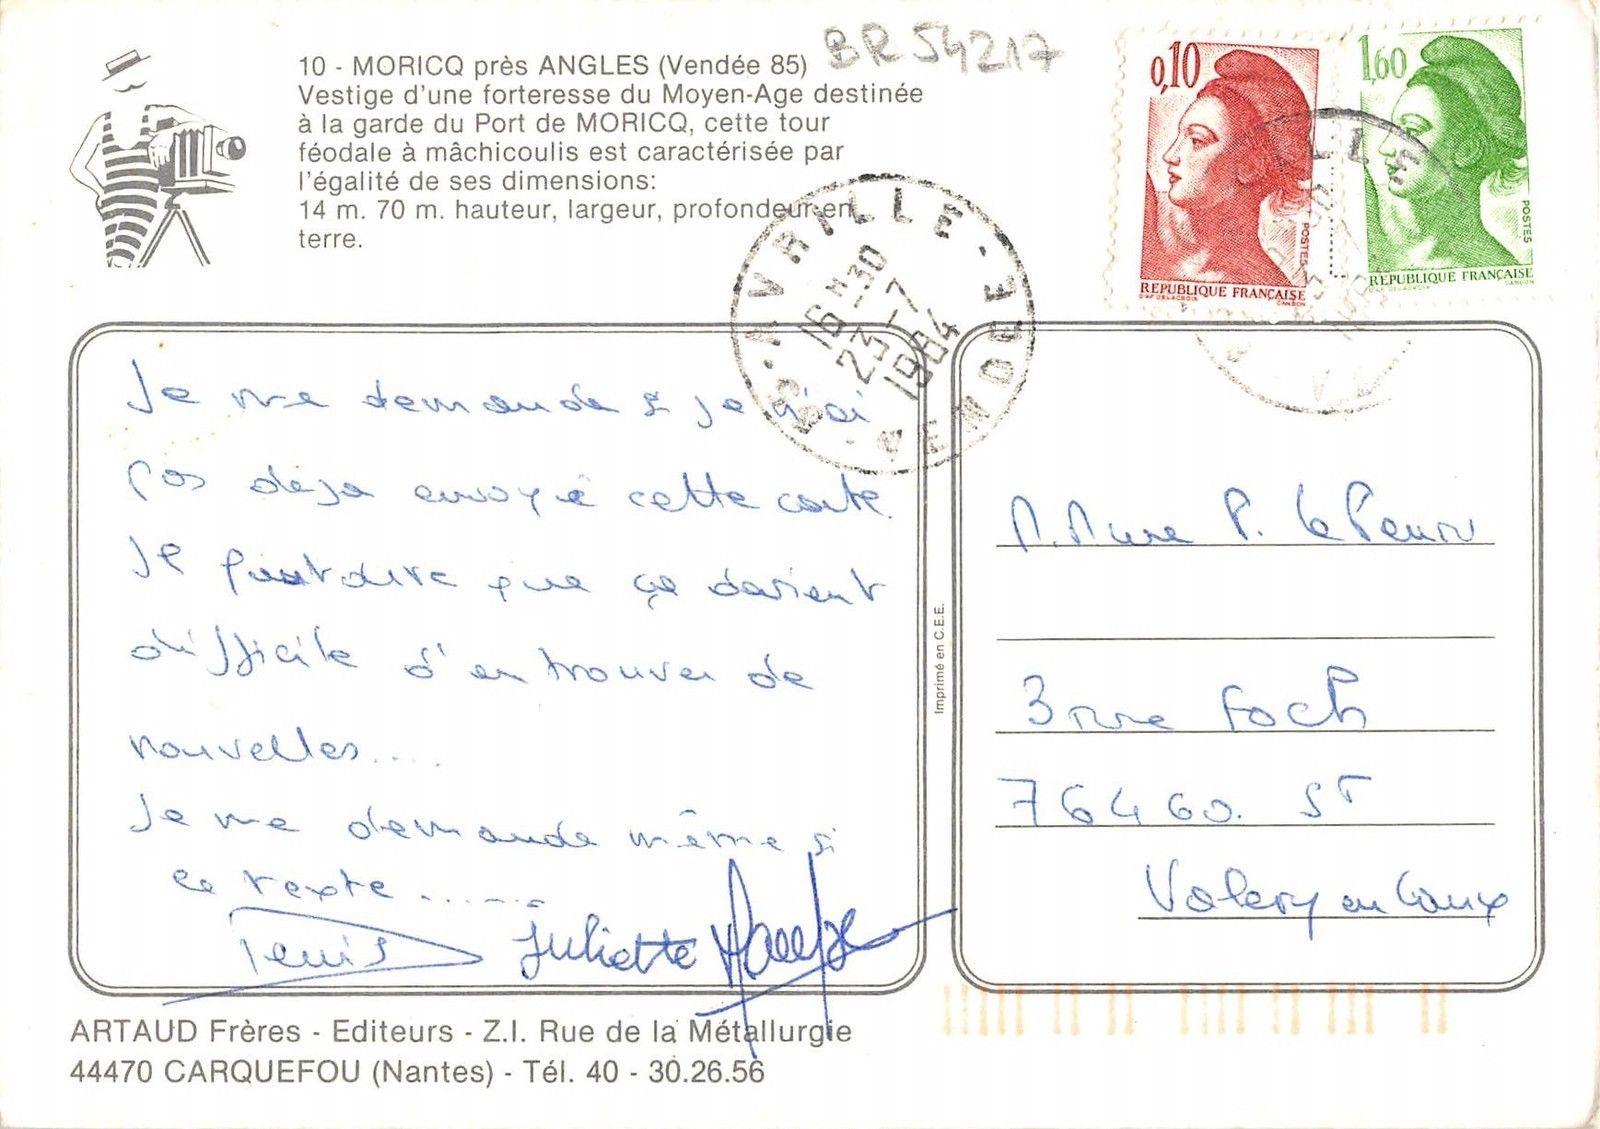 BR 54217
10 - MORICQ près ANGLES (Vendée 85)
Vestige d'une forteresse du Moyen-Age destinée
à la garde du Port de MORICQ, cette tour
féodale à mâchicoulis est caractérisée par
l'égalité de ses dimensions:
14 m. 70 m. hauteur, largeur, profondeur en
terre.
0,10
POSTES
REPUBLIQUE FRANÇAISE
D'AP. DELACROIX GANDON
1,60
POSTES
REPUBLIQUE FRANÇAISE
D'AP. DELACROIX GANDON
85 - AVRILLE - VENDEE
16 H 30
23 - 7
1984
Je me demande si je n'ai
pas deja envoyé cette carte.
Il faut dire que ça devient
difficile d'en trouver de
nouvelles....
Je me demande même si
ce texte.......
Denis Juliette
M. Mme P.
3 rue Foch
76460. ST
Valery en Caux
Imprimé en C.E.E.
ARTAUD Frères - Editeurs - Z.I. Rue de la Métallurgie
44470 CARQUEFOU (Nantes) - Tél. 40 - 30.26.56